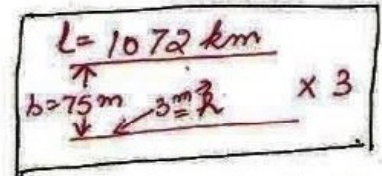 l = 1072 km
b = 75 m 3 m × 3